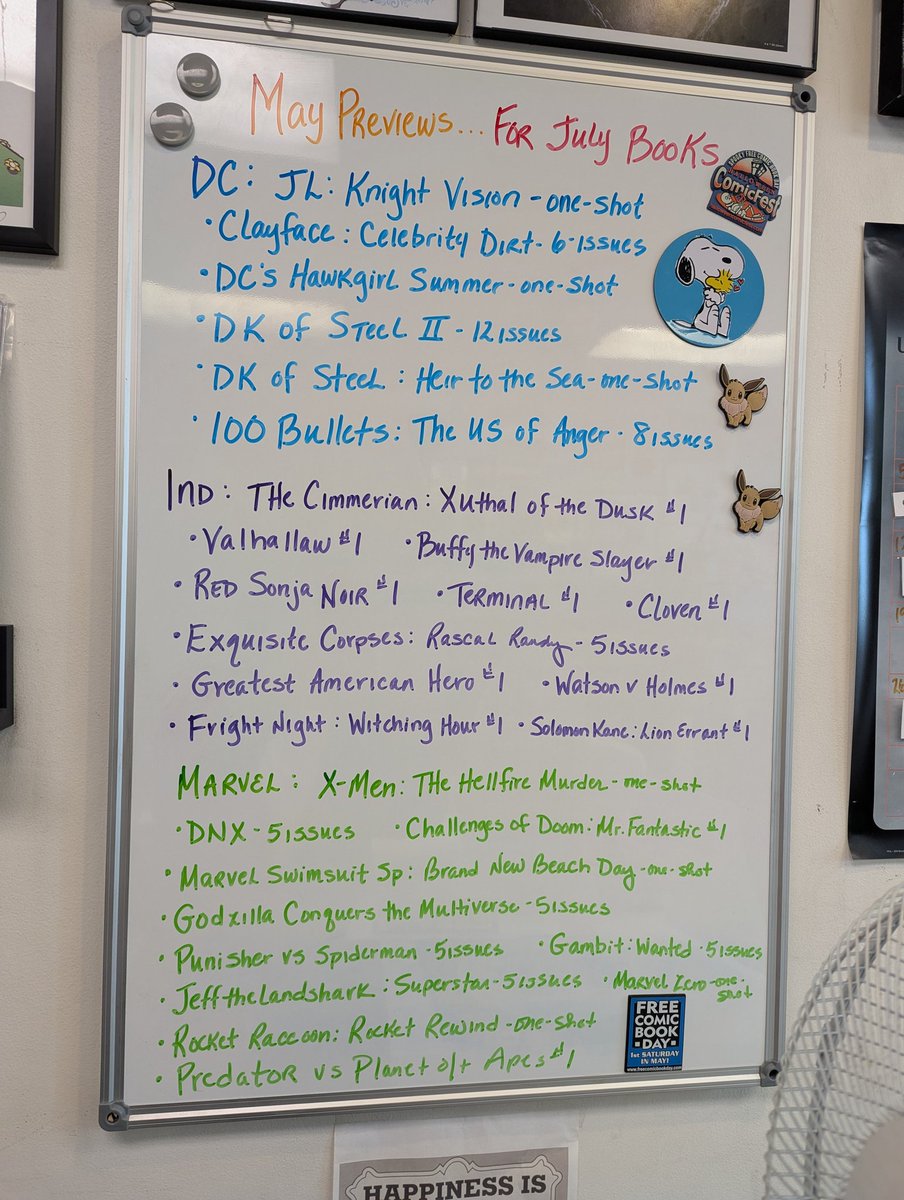 May Previews... For July Books
DC: JL: Knight Vision - one-shot
• Clayface: Celebrity Dirt - 6-issues
• DC's Hawkgirl Summer - one-shot
• DK of Steel II - 12 issues
• DK of Steel: Heir to the Sea - one-shot
• 100 Bullets: The US of Anger - 8 issues
Ind: The Cimmerian: Xuthal of the Dusk #1
• Valhallaw #1 • Buffy the Vampire Slayer #1
• Red Sonja Noir #1 • Terminal #1 • Cloven #1
• Exquisite Corpses: Rascal Randy - 5 issues
• Greatest American Hero #1 • Watson v Holmes #1
• Fright Night: Witching Hour #1 • Solomon Kane: Lion Errant #1
Marvel: X-Men: The Hellfire Murder - one-shot
• DNX - 5 issues • Challenges of Doom: Mr. Fantastic #1
• Marvel Swimsuit Sp: Brand New Beach Day - one-shot
• Godzilla Conquers the Multiverse - 5 issues
• Punisher vs Spiderman - 5 issues • Gambit: Wanted - 5 issues
• Jeff the Landshark: Superstar - 5 issues • Marvel Zero - one-shot
• Rocket Raccoon: Rocket Rewind - one-shot
• Predator vs Planet o/t Apes #1
ComicFest
FREE
COMIC
BOOK
DAY
1st SATURDAY
IN MAY!
www.freecomicbookday.com
HAPPINESS IS